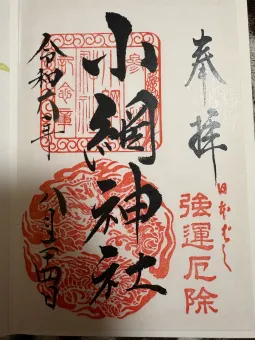 奉拝
日本ばし
強運厄除
小網神社
令和六年
八月一日